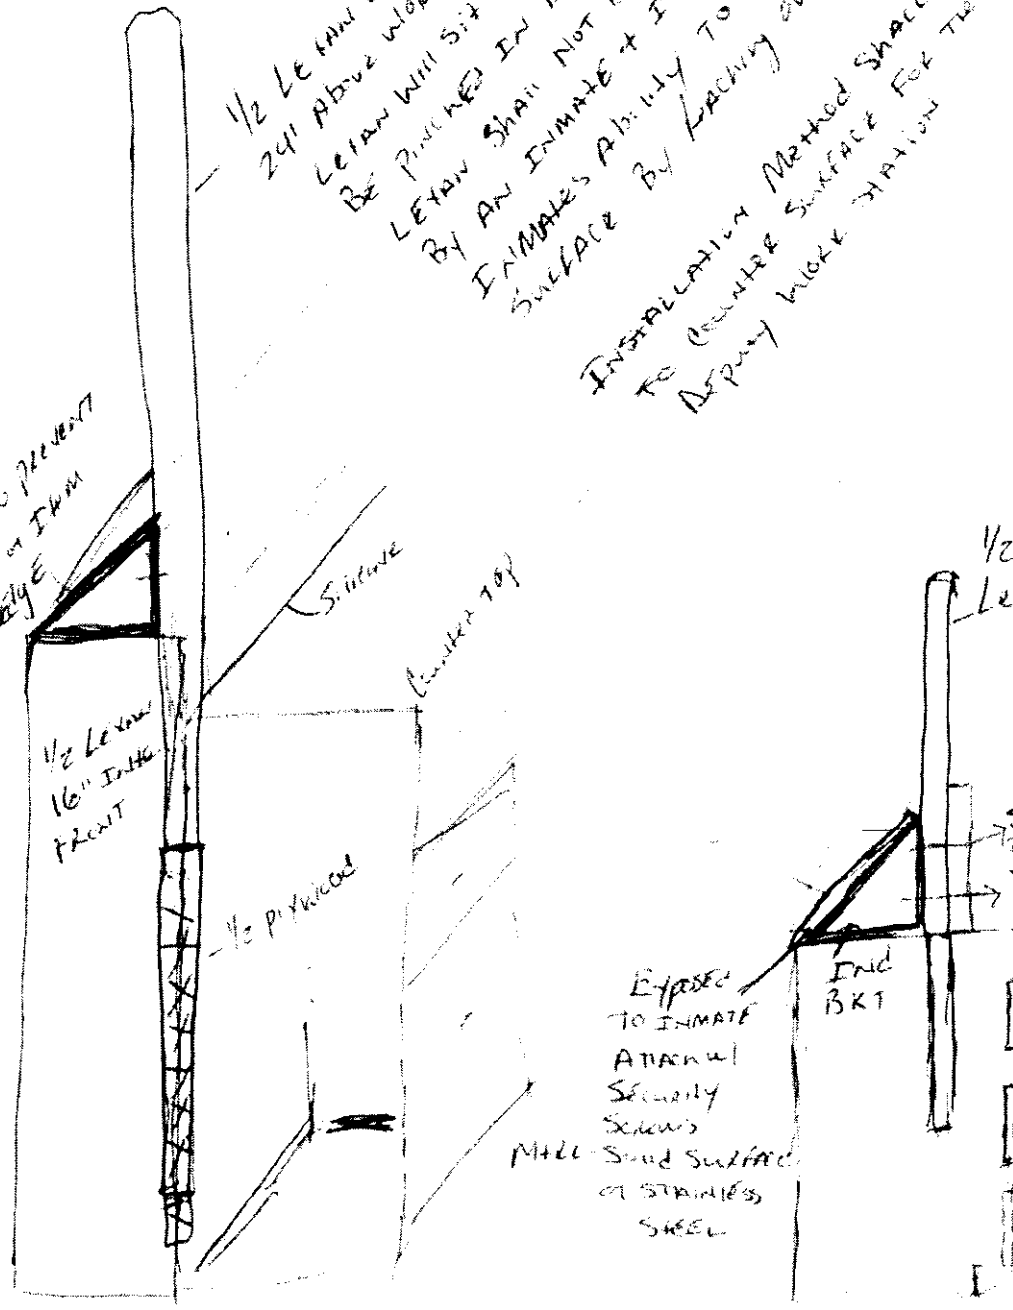 1/2 LEXAN
24" Above WOR
LEXAN Will Sit
BE PINCHED IN
LEXAN Shall NOT
By AN INMATE + I
INMATES Ability TO
SURFACE By Reaching
INSTALLATION Method Shall
TO Counter SURFACE FOR The
Deputy WORK STATION
O PREVENT
or ITEM
Edge
Silicone
Counter Top
1/2 Lexan
16" INTO
FRONT
1/2 Plywood
1/2
Le
Exposed
TO INMATE
Attach w/
Security
Screws
MTRL Solid SURFACE
or STAINLESS
STEEL
BKT
I